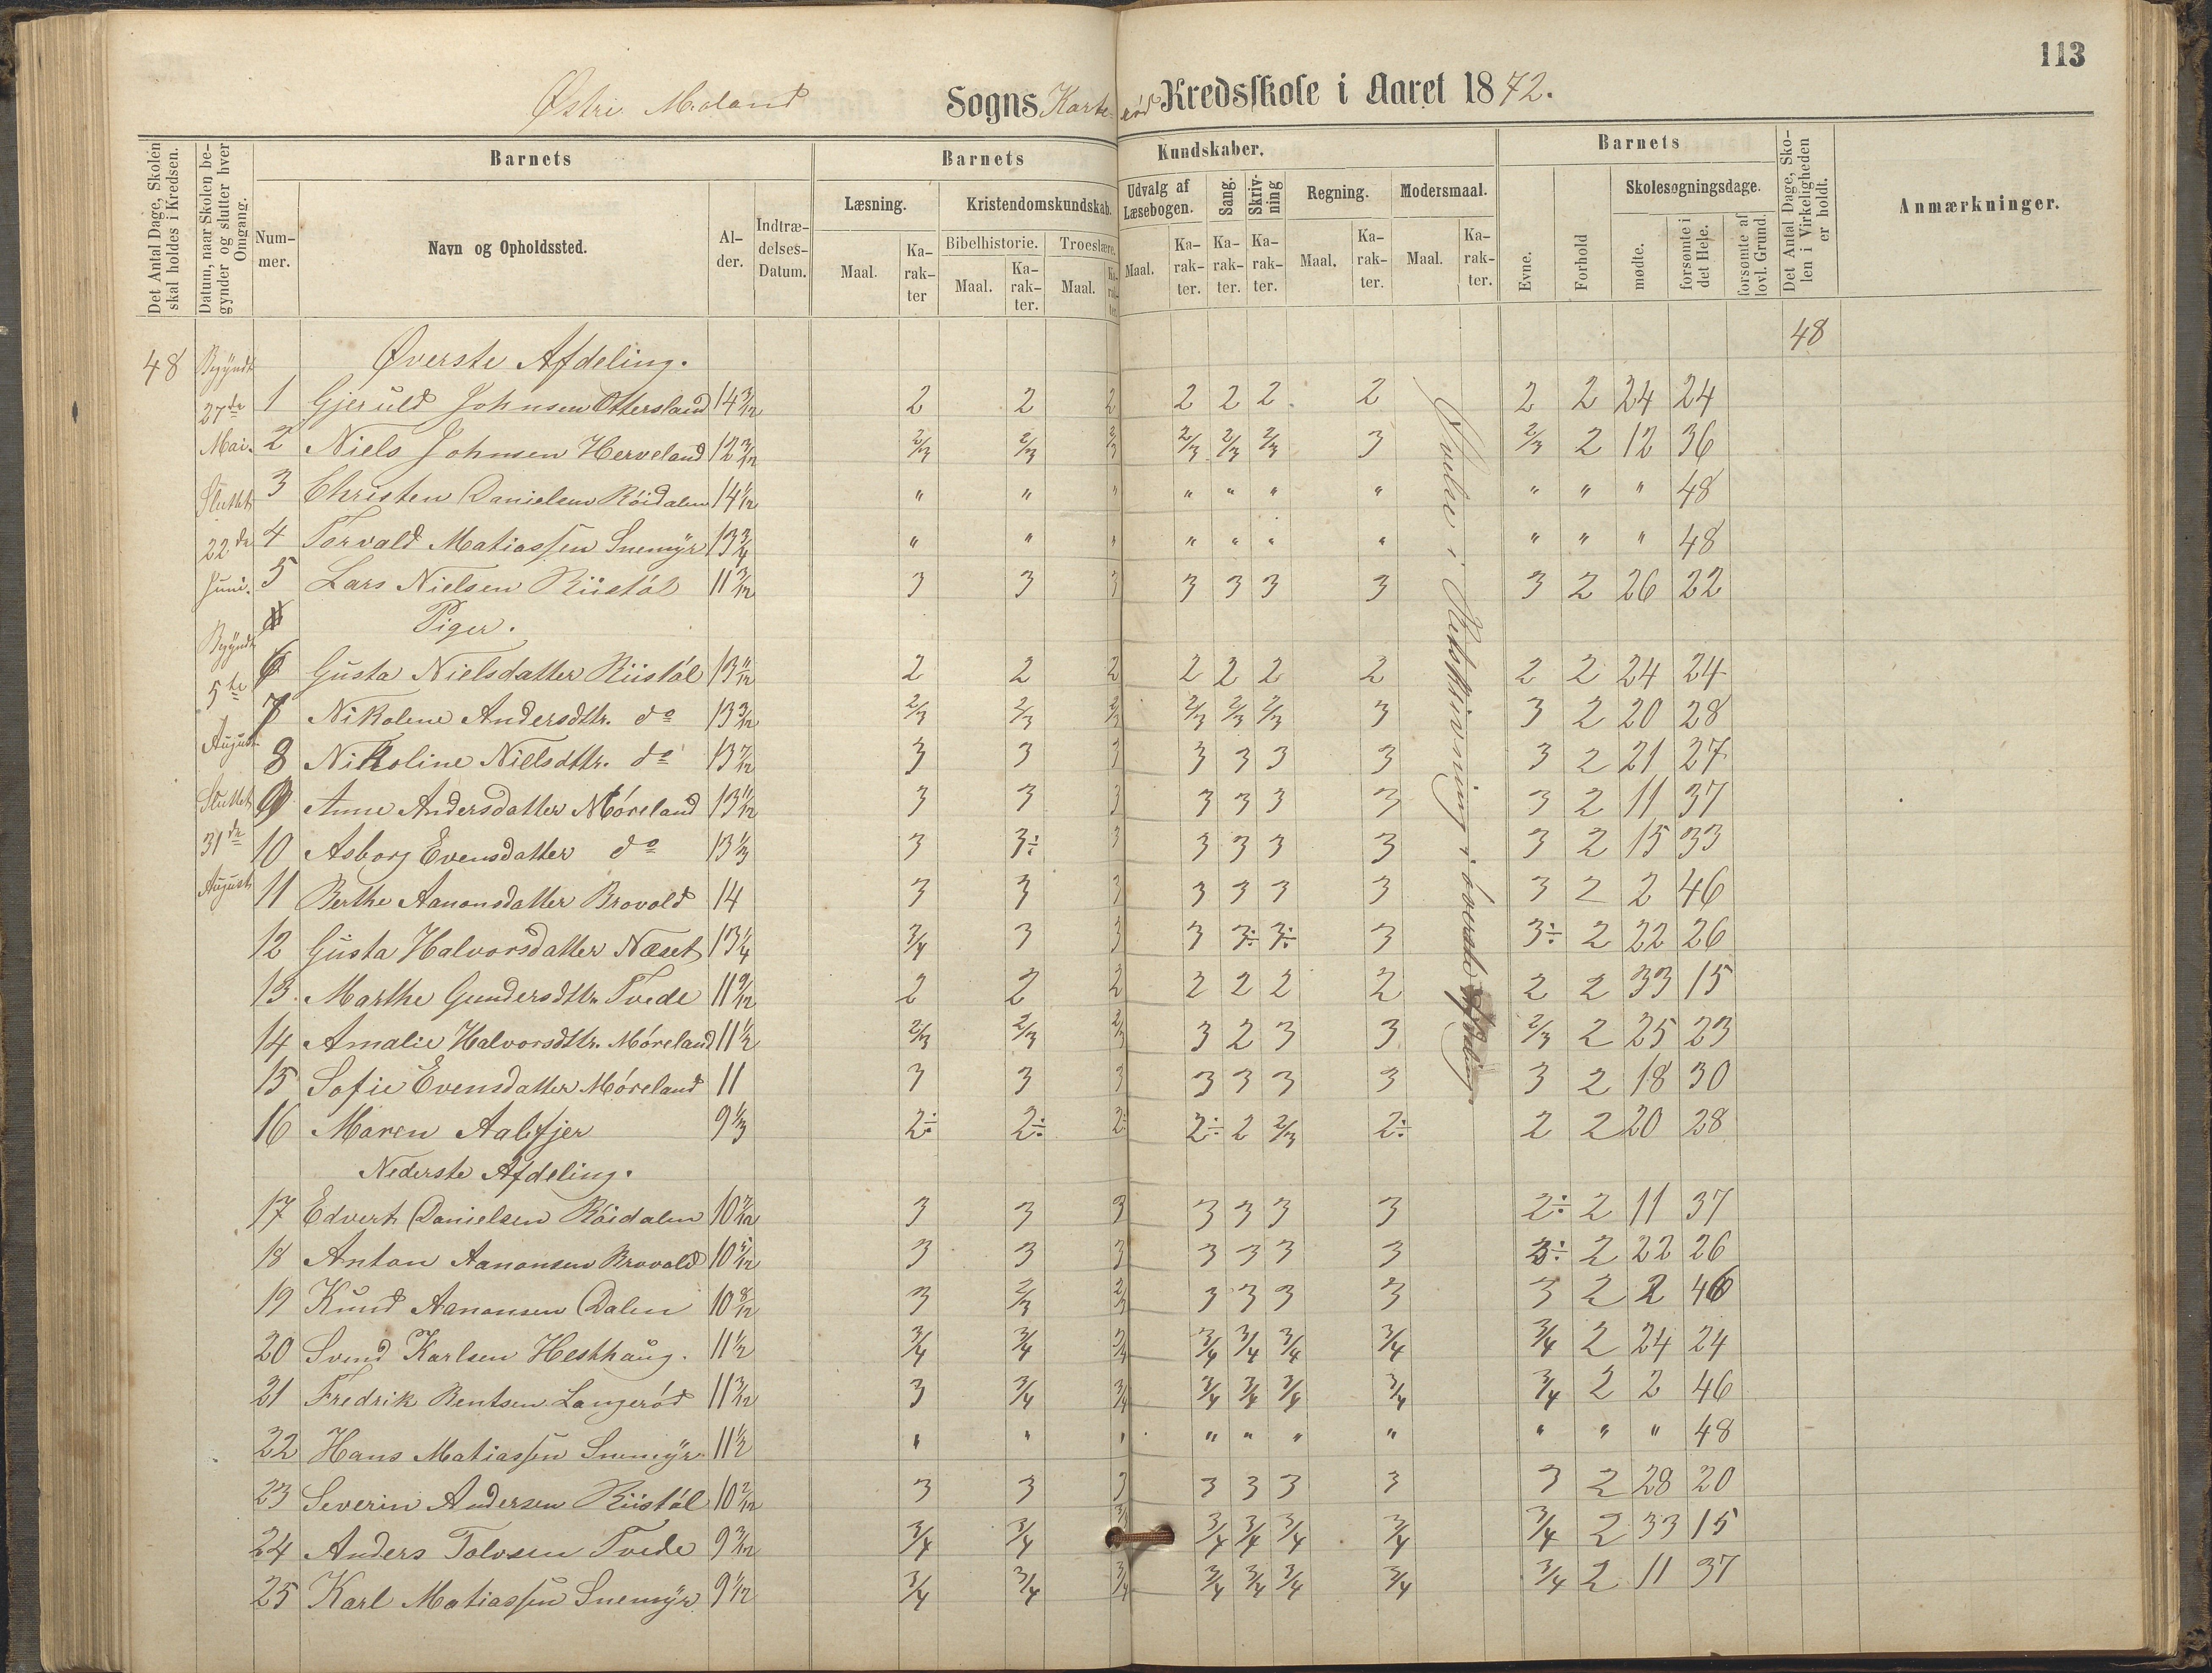 113
Østre Moland Sogns Karterød Kredsskole i Aaret 1872.
Det Antal Dage, Skolen skal holdes i Kredsen.
Datum, naar Skolen begynder og slutter hver Omgang.
Barnets
Nummer.
Navn og Opholdssted.
Alder.
Indtrædelses-Datum.
Barnets Kundskaber.
Læsning. Maal. Karakter
Kristendomskundskab.
Bibelhistorie. Maal. Karakter.
Troeslære. Maal. Karakter.
Udvalg af Læsebogen. Maal. Karakter.
Sang. Karakter.
Skrivning Karakter.
Regning. Maal. Karakter.
Modersmaal. Maal. Karakter.
Barnets
Evne.
Forhold
Skolesøgningsdage.
mødte.
forsømte i det Hele.
forsømte af lovl. Grund.
Det Antal Dage, Skolen i Virkeligheden er holdt.
Anmærkninger.
48 Begyndt 27de Mai. Sluttet 22de Juni. Begyndt 5te August Sluttet 31de August
48
Øvelse i Retskrivning i øverste Afdeling.
Øverste Afdeling.
1 Gjeruld Johnsen Ottersland 14 3/12 2 2 2 2 2 2 2 2 2 24 24
2 Niels Johnsen Herveland 12 3/12 2/3 2/3 2/3 2/3 2/3 2/3 3 2/3 2 12 36
3 Christen Danielsen Röidalen 14 1/12 " " " " " " " " " " 48
4 Torvald Matiassen Snemÿr 13 3/4 " " " " " " " " " " 48
5 Lars Nielsen Riistöl 11 3/12 3 3 3 3 3 3 3 3 2 26 22
Piger.
6 Gusta Nielsdatter Riistöl 13 11/12 2 2 2 2 2 2 2 2 2 24 24
7 Nikolene Andersdttr. do 13 3/12 2/3 2/3 2/3 2/3 2/3 2/3 3 3 2 20 28
8 Nikoline Nielsdttr. do 13 7/12 3 3 3 3 3 3 3 3 2 21 27
9 Anne Andersdatter Möreland 13 11/12 3 3 3 3 3 3 3 3 2 11 37
10 Asborg Evensdatter do 13 1/3 3 3÷ 3 3 3 3 3 3 2 15 33
11 Berthe Aanonsdatter Brovold 14 3 3 3 3 3 3 3 3 2 2 46
12 Gusta Halvorsdatter Næset 13 1/4 3/4 3 3 3 3÷ 3÷ 3 3÷ 2 22 26
13. Marthe Gundersdttr. Tvede 11 9/12 2 2 2 2 2 2 2 2 2 33 15
14 Amalie Halvorsdttr. Möreland 11 1/2 2/3 2/3 2/3 3 2 3 3 2/3 2 25 23
15 Sofie Evensdatter Möreland 11 3 3 3 3 3 3 3 3 2 18 30
16 Maren Aalefjer 9 1/3 2÷ 2÷ 2÷ 2÷ 2 2/3 2÷ 2 2 20 28
Nederste Afdeling.
17 Edvert Danielsen Röidalen 10 7/12 3 3 3 3 3 3 3 2÷ 2 11 37
18 Anton Aanonsen Brovold 10 5/12 3 3 3 3 3 3 3 3÷ 2 22 26
19 Knud Aanonsen Dalen 10 8/12 3 2/3 2/3 3 3 3 3 3 2 2 46
20 Svend Karlsen Hesthaug. 11 1/2 3/4 3/4 3/4 3/4 3/4 3/4 3/4 3/4 2 24 24
21 Fredrik Bentsen Langeröd 11 3/12 3 3/4 3/4 3/4 3/4 3/4 3/4 3/4 2 2 46
22 Hans Matiassen Snemÿr 11 1/2 " " " " " " " " " " 48
23 Severin Andersen Riistöl 10 2/12 3 3 3 3 3 3 3 3 2 28 20
24 Anders Tolvsen Tvede 9 3/12 3/4 3/4 3/4 3/4 3/4 3/4 3/4 3/4 2 33 15
25 Karl Matiassen Snemÿr 9 1/12 3/4 3/4 3/4 3/4 3/4 3/4 3/4 3/4 2 11 37